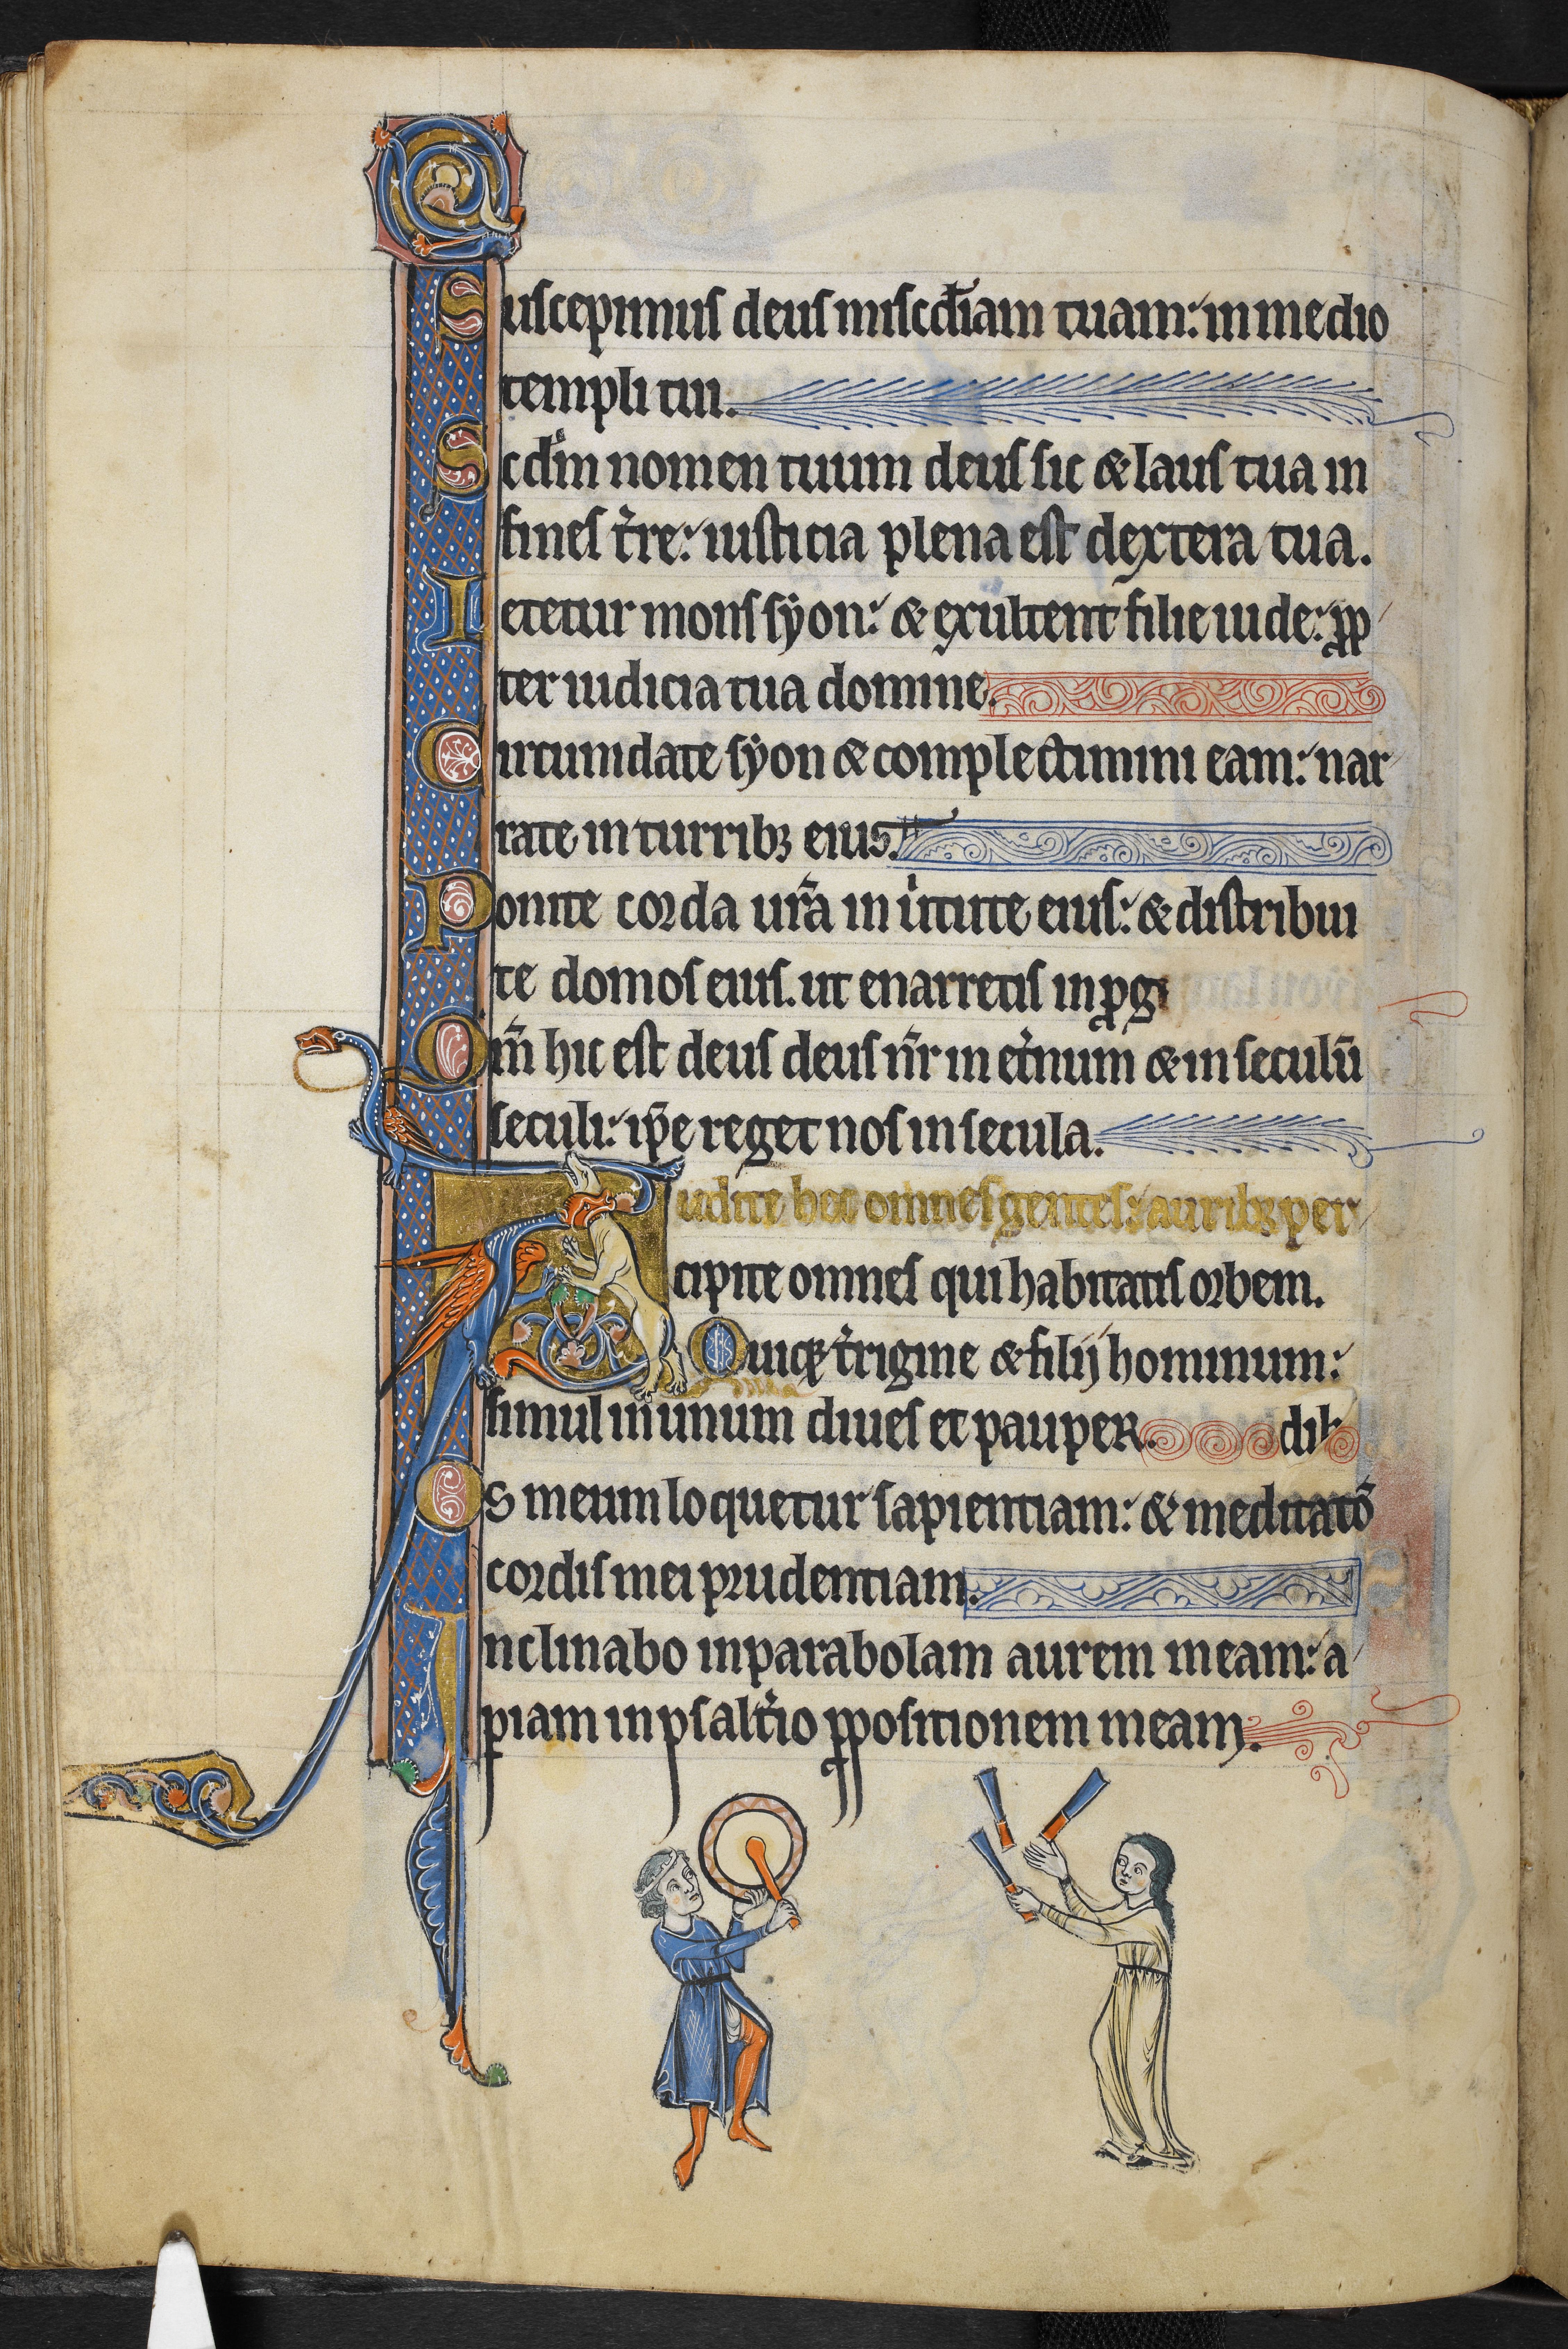 Suscepimus deus miscd̄iam tuam: in medio
templi tui.
Scd̄m nomen tuum deus sic & laus tua in
fines t̄re: iusticia plena est dextera tua.
Letetur mons syon: & exultent filie iude: pp
ter iudicia tua domine.
Circumdate syon & complectimini eam: nar
rate in turribꝫ eius.
Ponite corda ur̄a in uirtute eius: & distribui
te domos eius. ut enarretis in ꝓg
Qm̄ hic est deus deus nr̄ in et̄num & in seculū
seculi: ip̄e reget nos in secula.
Audite hec omnes gentes: auribꝫ per
cipite omnes qui habitatis orbem.
Quiqꝫ t̄rigine & filij hominum:
simul in unum diues et pauper.
Os meum loquetur sapientiam: & meditatō
cordis mei prudentiam.
Inclinabo in parabolam aurem meam: a
piam in psalt̄io ꝓpositionem meam.